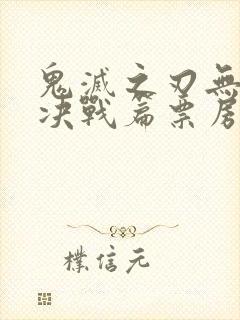 鬼滅之刃無
决戰篇票房
樸信元